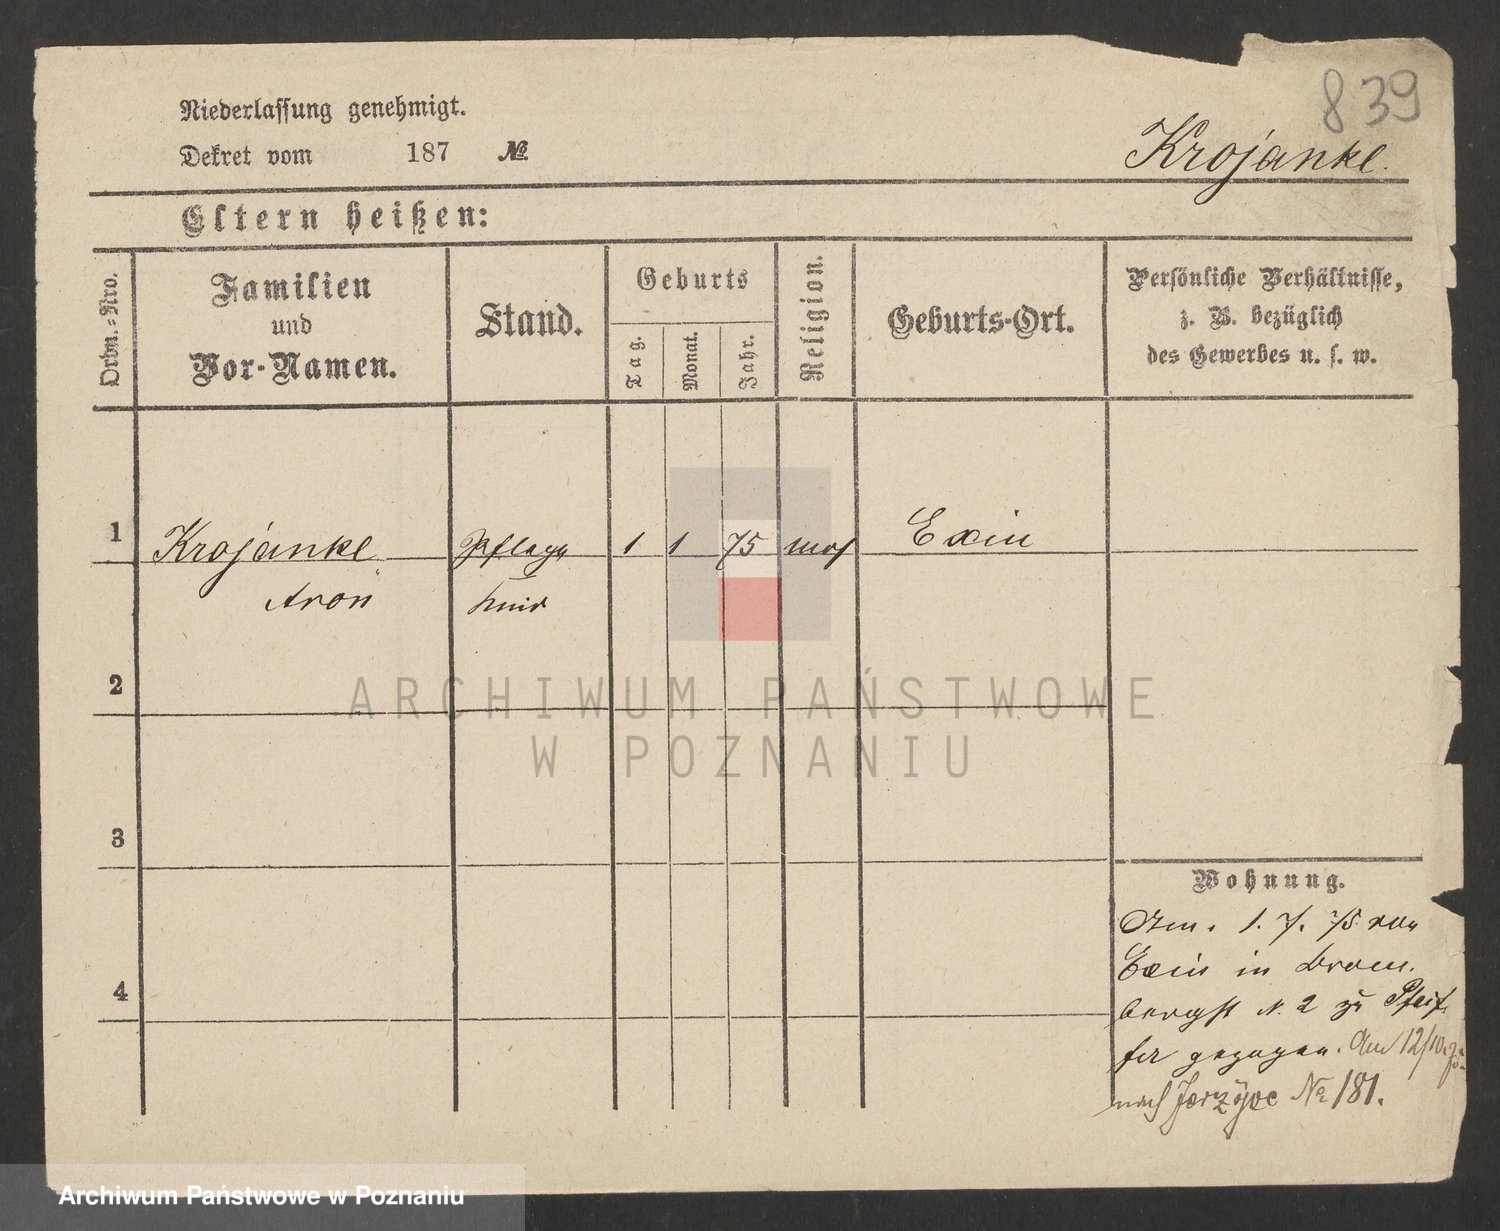 839
Niederlassung genehmigt.
Dekret vom 187 №
Krojanke.
Eltern heißen:
Ordn.=Nro.
Familien
und
Vor-Namen.
Stand.
Geburts
Tag.
Monat.
Jahr.
Religion.
Geburts-Ort.
Persönliche Verhältnisse,
z. B. bezüglich
des Gewerbes u. s. w.
1
Krojanke Pflege 1 1 75 mos Exin
Aron kind
2
ARCHIWUM PAŃSTWOWE
W POZNANIU
3
Wohnung.
Am. 1. 7. 75 von
Exin in Brom.
bergst N. 2 zu Pfeif
fer gezogen. Am 12/10.
nach Jerzyce No 181.
4
Archiwum Państwowe w Poznaniu